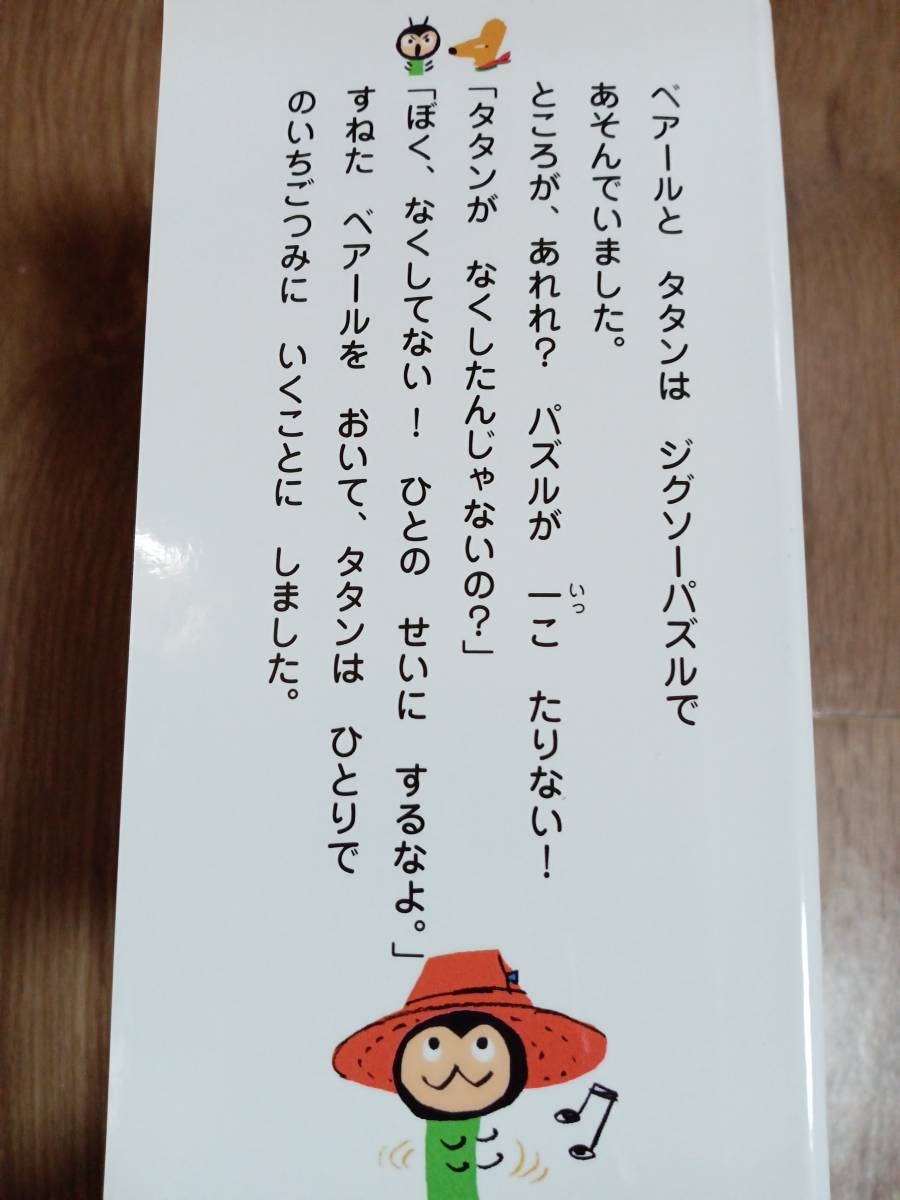 ベアールと　タタンは　ジグソーパズルで
あそんでいました。
ところが、あれれ？　パズルが　一こ　たりない！
いっ
「タタンが　なくしたんじゃないの？」
「ぼく、なくしてない！　ひとの　せいに　するなよ。」
すねた　ベアールを　おいて、タタンは　ひとりで
のいちごつみに　いくことに　しました。